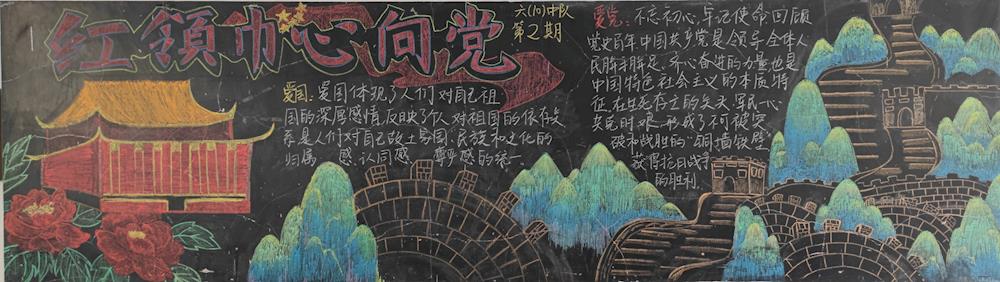 红领巾心向党
六(10)中队
第2期
爱国:爱国体现了人们对自己祖
国的深厚感情反映了个人对祖国的依存关
系是人们对自己故土家园、民族和文化的
归属感、认同感 尊严感的统一
爱党:不忘初心、牢记使命回顾
党史百年中国共产党是领导全体人
民胼手胝足、齐心奋进的力量也是
中国特色社会主义的本质特
征,在生死存亡的关头,军民一心
共克时艰形成了不可被突
破和战胜的“铜墙铁壁”
获得抗日战争
的胜利